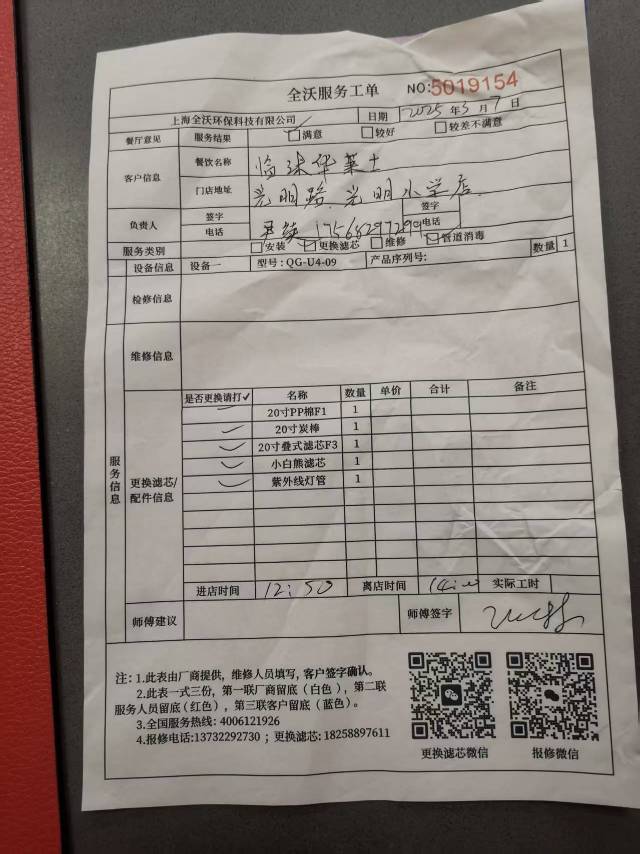 全沃服务工单 NO:5019154
上海全沃环保科技有限公司 日期 2025年3月7日
餐厅意见 服务结果 满意 较好 较差不满意
客户信息 餐饮名称 临沭华莱士
门店地址 光明路 光明小学店
负责人 签字 签字
电话 电话
服务类别 安装 更换滤芯 维修 管道消毒
设备信息 设备一 型号:QG-U4-09 产品序列号: 数量 1
检修信息
维修信息
服务信息
更换滤芯/配件信息
是否更换请打✓ 名称 数量 单价 合计 备注
20寸PP棉F1 1
20寸炭棒 1
20寸叠式滤芯F3 1
小白熊滤芯 1
紫外线灯管 1
进店时间 12:50 离店时间 实际工时
师傅建议 师傅签字
注:1.此表由厂商提供,维修人员填写,客户签字确认。
2.此表一式三份,第一联厂商留底(白色),第二联
服务人员留底(红色),第三联客户留底(蓝色)。
3.全国服务热线:4006121926
4.报修电话:13732292730;更换滤芯:18258897611
更换滤芯微信 报修微信